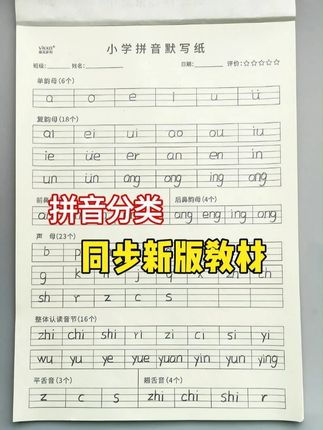 小学拼音默写纸
班级: 姓名: 日期: 评价:☆☆☆☆☆
单韵母(6个)
a o e i u ü
复韵母(18个)
ai ei ui ao ou iu
ie üe er an en in
un ün ang eng ing ong
后鼻韵母(4个)
ang eng ing ong
拼音分类
声 母(23个)
b p
同步新版教材
g
sh r z c s
整体认读音节(16个)
zhi chi shi ri zi ci si yi
wu yu ye yue yuan yin yun ying
平舌音(3个) 翘舌音(4个)
z c s zhi chi shi r